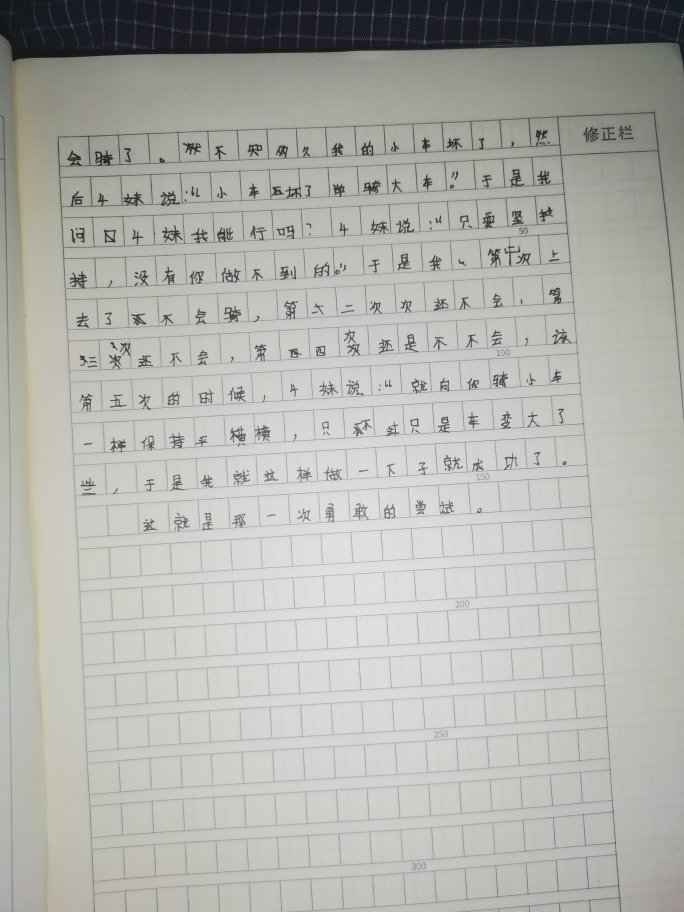 修正栏
会骑了。不知多久我的小车坏了，然
后4妹说：“小车坏了单骑大车。”于是我
问4妹我能行吗？4妹说：“只要坚
50
持，没有你做不到的。”于是我第次上
去了不会骑，第二次还不会，第
三次还不会，第四次还是不会，该
100
第五次的时候，4妹说：“就向你骑小车
一样保持平横，只过只是车变大了
些，于是我就这样做一下子就成功了。
150
这就是那一次勇敢的尝试。
200
250
300